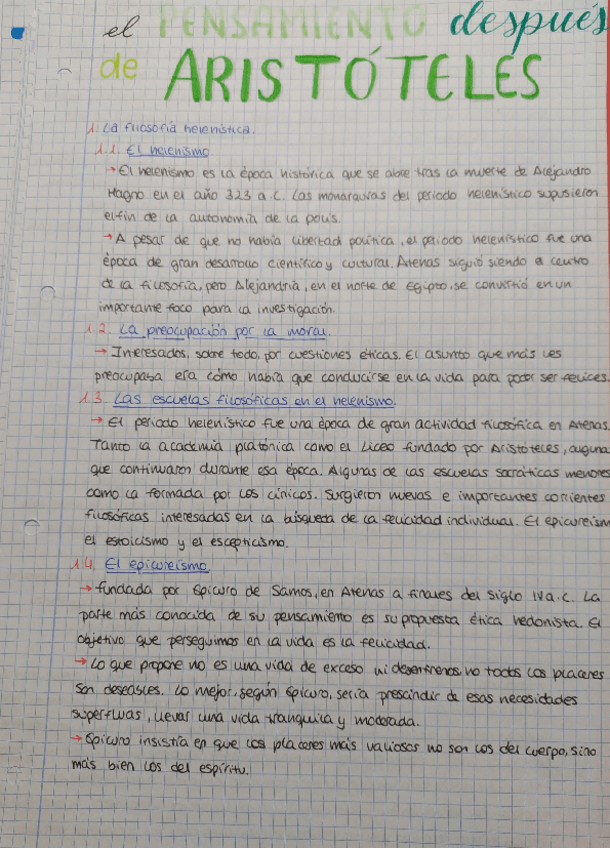 el PENSAMIENTO después
de ARISTÓTELES
1. La filosofía helenística.
1.1. El helenismo.
→ El helenismo es la época histórica que se abre tras la muerte de Alejandro
Magno en el año 323 a.C. Las monarquías del periodo helenístico supusieron
el fin de la autonomía de la polis.
→ A pesar de que no había libertad política, el periodo helenístico fue una
época de gran desarrollo científico y cultural. Atenas siguió siendo el centro
de la filosofía, pero Alejandría, en el norte de Egipto, se convirtió en un
importante foco para la investigación.
1.2. La preocupación por la moral.
→ Interesados, sobre todo, por cuestiones éticas. El asunto que más les
preocupaba era cómo había que conducirse en la vida para poder ser felices.
1.3. Las escuelas filosóficas en el helenismo.
→ El periodo helenístico fue una época de gran actividad filosófica en Atenas.
Tanto la academia platónica como el Liceo fundado por Aristóteles, alguna
que continuaron durante esa época. Algunas de las escuelas socráticas menores
como la formada por los cínicos. Surgieron nuevas e importantes corrientes
filosóficas interesadas en la búsqueda de la felicidad individual. El epicureism
el estoicismo y el escepticismo.
1.4. El epicureísmo.
→ fundada por Epicuro de Samos, en Atenas a finales del siglo IV a.C. La
parte más conocida de su pensamiento es su propuesta ética hedonista. El
objetivo que perseguimos en la vida es la felicidad.
→ Lo que propone no es una vida de exceso ni desenfrenos, no todos los placeres
son deseables. Lo mejor, según Epicuro, sería prescindir de esas necesidades
superfluas, llevar una vida tranquila y moderada.
→ Epicuro insistía en que los placeres más valiosos no son los del cuerpo, sino
más bien los del espíritu.